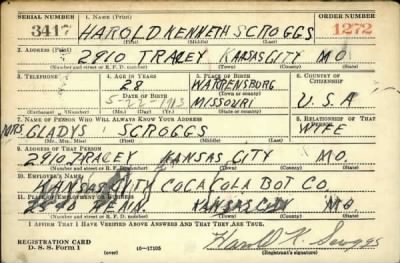 SERIAL NUMBER 1. NAME (Print) ORDER NUMBER
3417 HAROLD KENNETH SCROGGS 1272
(First) (Middle) (Last)
2. ADDRESS (Print)
2910 TRACEY KANSAS CITY MO.
(Number and street or R. F. D. number) (Town) (County) (State)
3. TELEPHONE 4. AGE IN YEARS 5. PLACE OF BIRTH 6. COUNTRY OF CITIZENSHIP
28 WARRENSBURG
DATE OF BIRTH (Town or county)
5-22-1913 MISSOURI U. S. A
(Exchange) (Number) (Mo.) (Day) (Yr.) (State or country)
7. NAME OF PERSON WHO WILL ALWAYS KNOW YOUR ADDRESS 8. RELATIONSHIP OF THAT PERSON
MRS GLADYS SCROGGS WIFE
(Mr., Mrs., Miss) (First) (Middle) (Last)
9. ADDRESS OF THAT PERSON
2910-TRACEY KANSAS CITY MO.
(Number and street or R. F. D. number) (Town) (County) (State)
10. EMPLOYER'S NAME
KANSAS CITY COCA COLA BOT CO.
11. PLACE OF EMPLOYMENT OR BUSINESS
KANSAS CITY MO
(Number and street or R. F. D. number) (Town) (County) (State)
I AFFIRM THAT I HAVE VERIFIED ABOVE ANSWERS AND THAT THEY ARE TRUE.
REGISTRATION CARD
D. S. S. Form 1 (over) 16—17105 Harold K. Scroggs
(Registrant's signature)